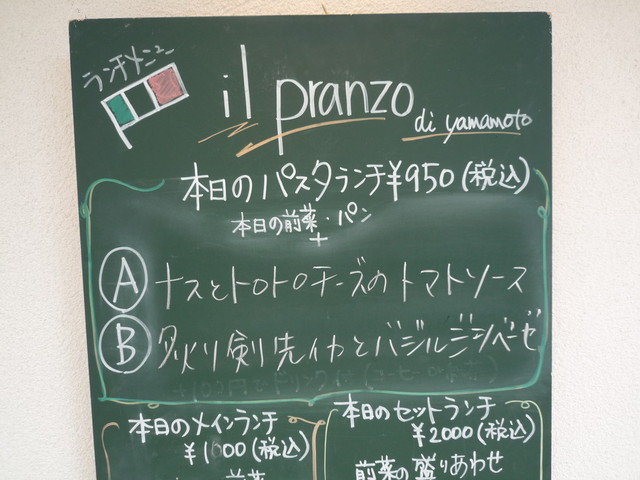 ランチメニュー
il pranzo
di yamamoto
本日のパスタランチ¥950(税込)
本日の前菜・パン
+
A ナスとトロトロチーズのトマトソース
B 炙り剣先イカとバジルジェノベーゼ
本日のメインランチ
¥1000(税込)
前菜
本日のセットランチ
¥2000(税込)
前菜の盛りあわせ